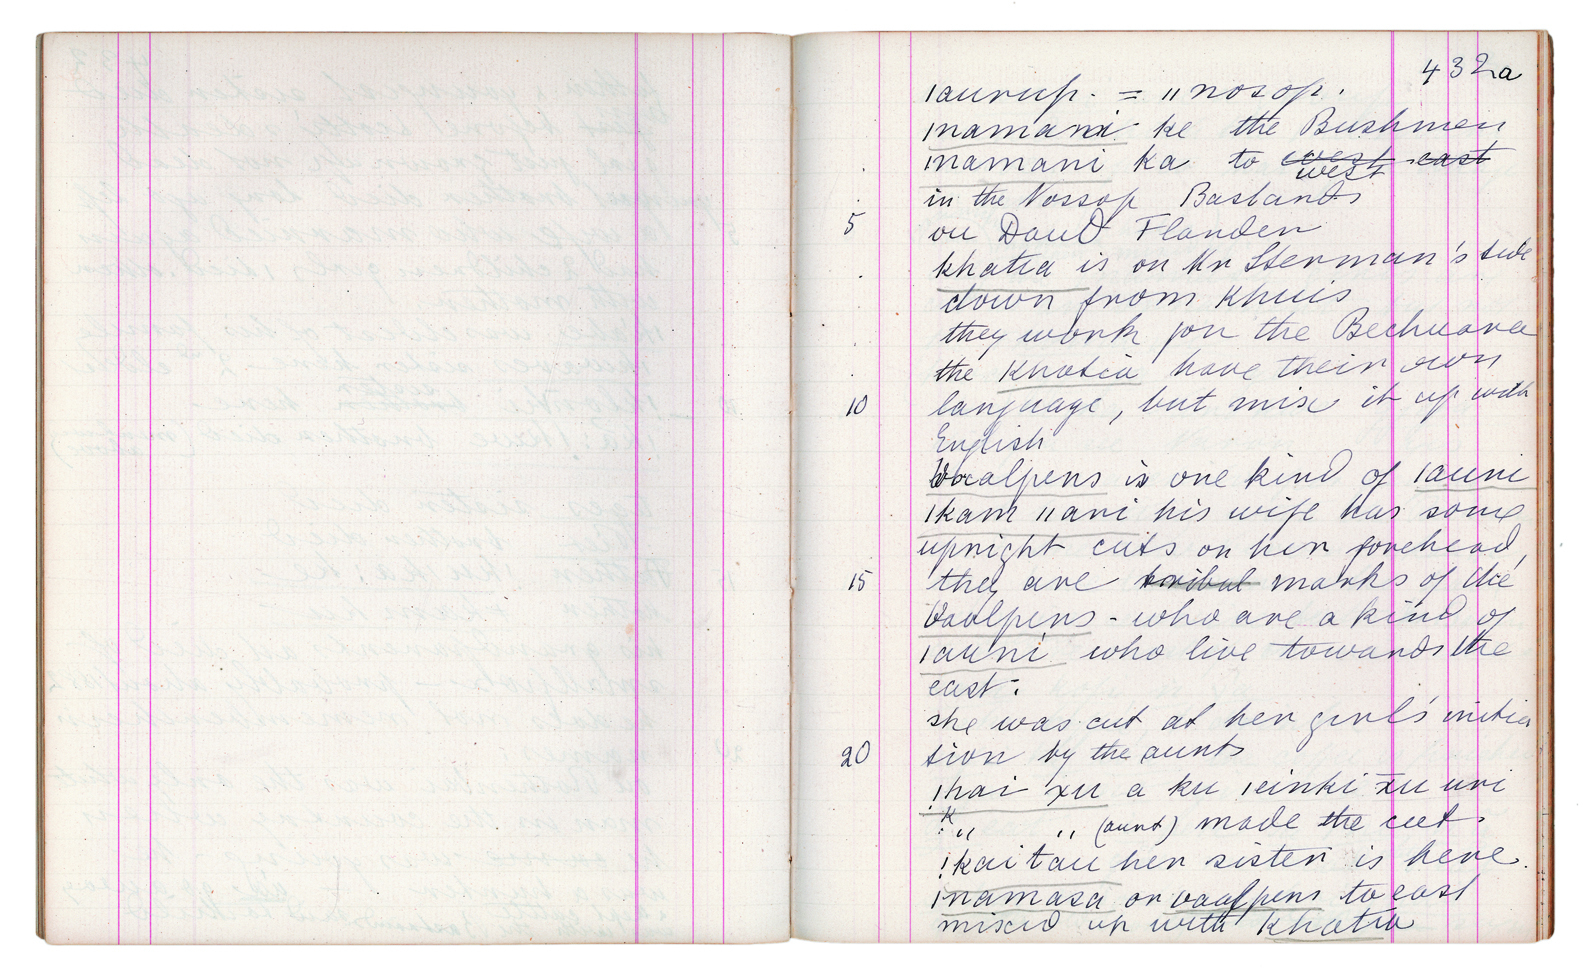 432a
ǀaurup. = ǁnosop.
ǀnamani ke the Bushmen
ǀnamani ka to west east
west
in the Nossop Bastards
5
on Daud Flanden
khatia is on Mr Sterman's side
down from Khuis
they work for the Bechuana
the Khatia have their own
10 language, but mix it up with
English
Vaalpens is one kind of ǀauni
ǀkam ǁani his wife has some
upright cuts on her forehead,
15 they are tribal marks of the
Vaalpens - who are a kind of
ǀauni who live towards the
east.
she was cut at her girl's initia
20 tion by the aunts
ǃhai xu a ku ǀeinki xu uri
ǃk " " (aunt) made the cut.
ǃkaitau her sister is here.
ǀnamasa or vaalpens to east
mixed up with khatia